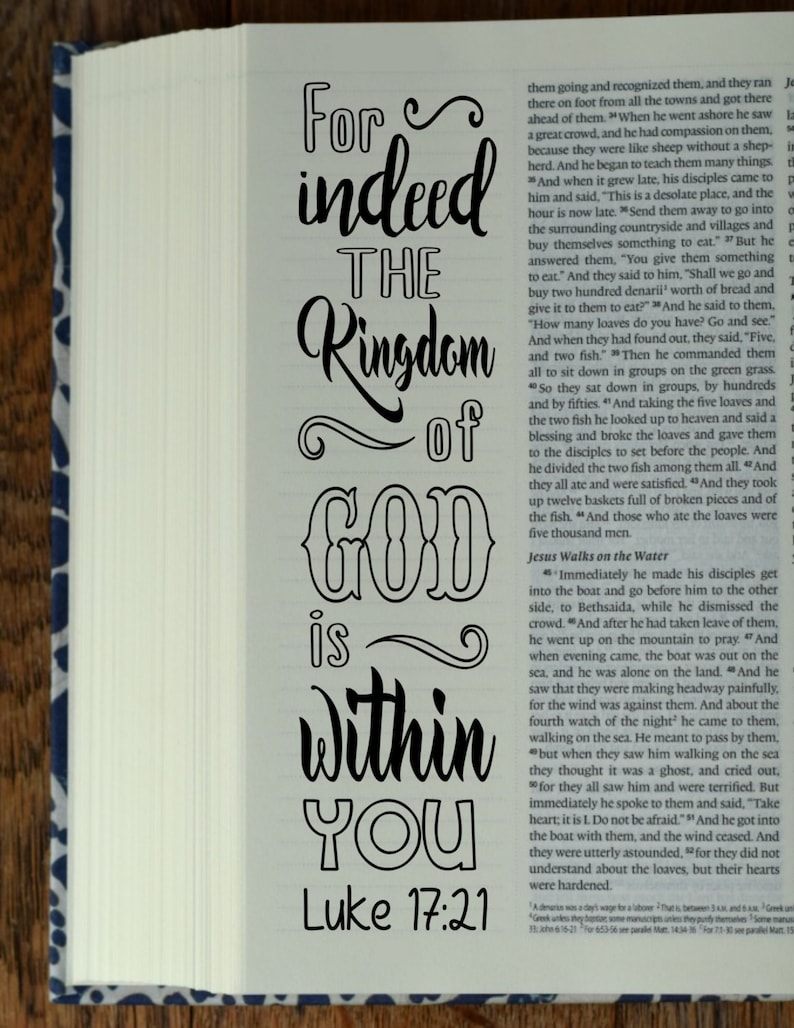 For
indeed
THE
Kingdom
of
GOD
is
within
YOU
Luke 17:21
them going and recognized them, and they ran
there on foot from all the towns and got there
ahead of them. 34 When he went ashore he saw
a great crowd, and he had compassion on them,
because they were like sheep without a shep-
herd. And he began to teach them many things.
35 And when it grew late, his disciples came to
him and said, “This is a desolate place, and the
hour is now late. 36 Send them away to go into
the surrounding countryside and villages and
buy themselves something to eat.” 37 But he
answered them, “You give them something
to eat.” And they said to him, “Shall we go and
buy two hundred denarii1 worth of bread and
give it to them to eat?” 38 And he said to them,
“How many loaves do you have? Go and see.”
And when they had found out, they said, “Five,
and two fish.” 39 Then he commanded them
all to sit down in groups on the green grass.
40 So they sat down in groups, by hundreds
and by fifties. 41 And taking the five loaves and
the two fish he looked up to heaven and said a
blessing and broke the loaves and gave them
to the disciples to set before the people. And
he divided the two fish among them all. 42 And
they all ate and were satisfied. 43 And they took
up twelve baskets full of broken pieces and of
the fish. 44 And those who ate the loaves were
five thousand men.
Jesus Walks on the Water
45 Immediately he made his disciples get
into the boat and go before him to the other
side, to Bethsaida, while he dismissed the
crowd. 46 And after he had taken leave of them,
he went up on the mountain to pray. 47 And
when evening came, the boat was out on the
sea, and he was alone on the land. 48 And he
saw that they were making headway painfully,
for the wind was against them. And about the
fourth watch of the night2 he came to them,
walking on the sea. He meant to pass by them,
49 but when they saw him walking on the sea
they thought it was a ghost, and cried out,
50 for they all saw him and were terrified. But
immediately he spoke to them and said, “Take
heart; it is I. Do not be afraid.” 51 And he got into
the boat with them, and the wind ceased. And
they were utterly astounded, 52 for they did not
understand about the loaves, but their hearts
were hardened.
1 A denarius was a day's wage for a laborer 2 That is, between 3 A.M. and 6 A.M. 3 Greek
4 Greek unless they baptize; some manuscripts unless they purify themselves 5 Some
33; John 6:16-21 For 6:53-56 see parallel Matt. 14:34-36 For 7:1-30 see parallel Matt. 15